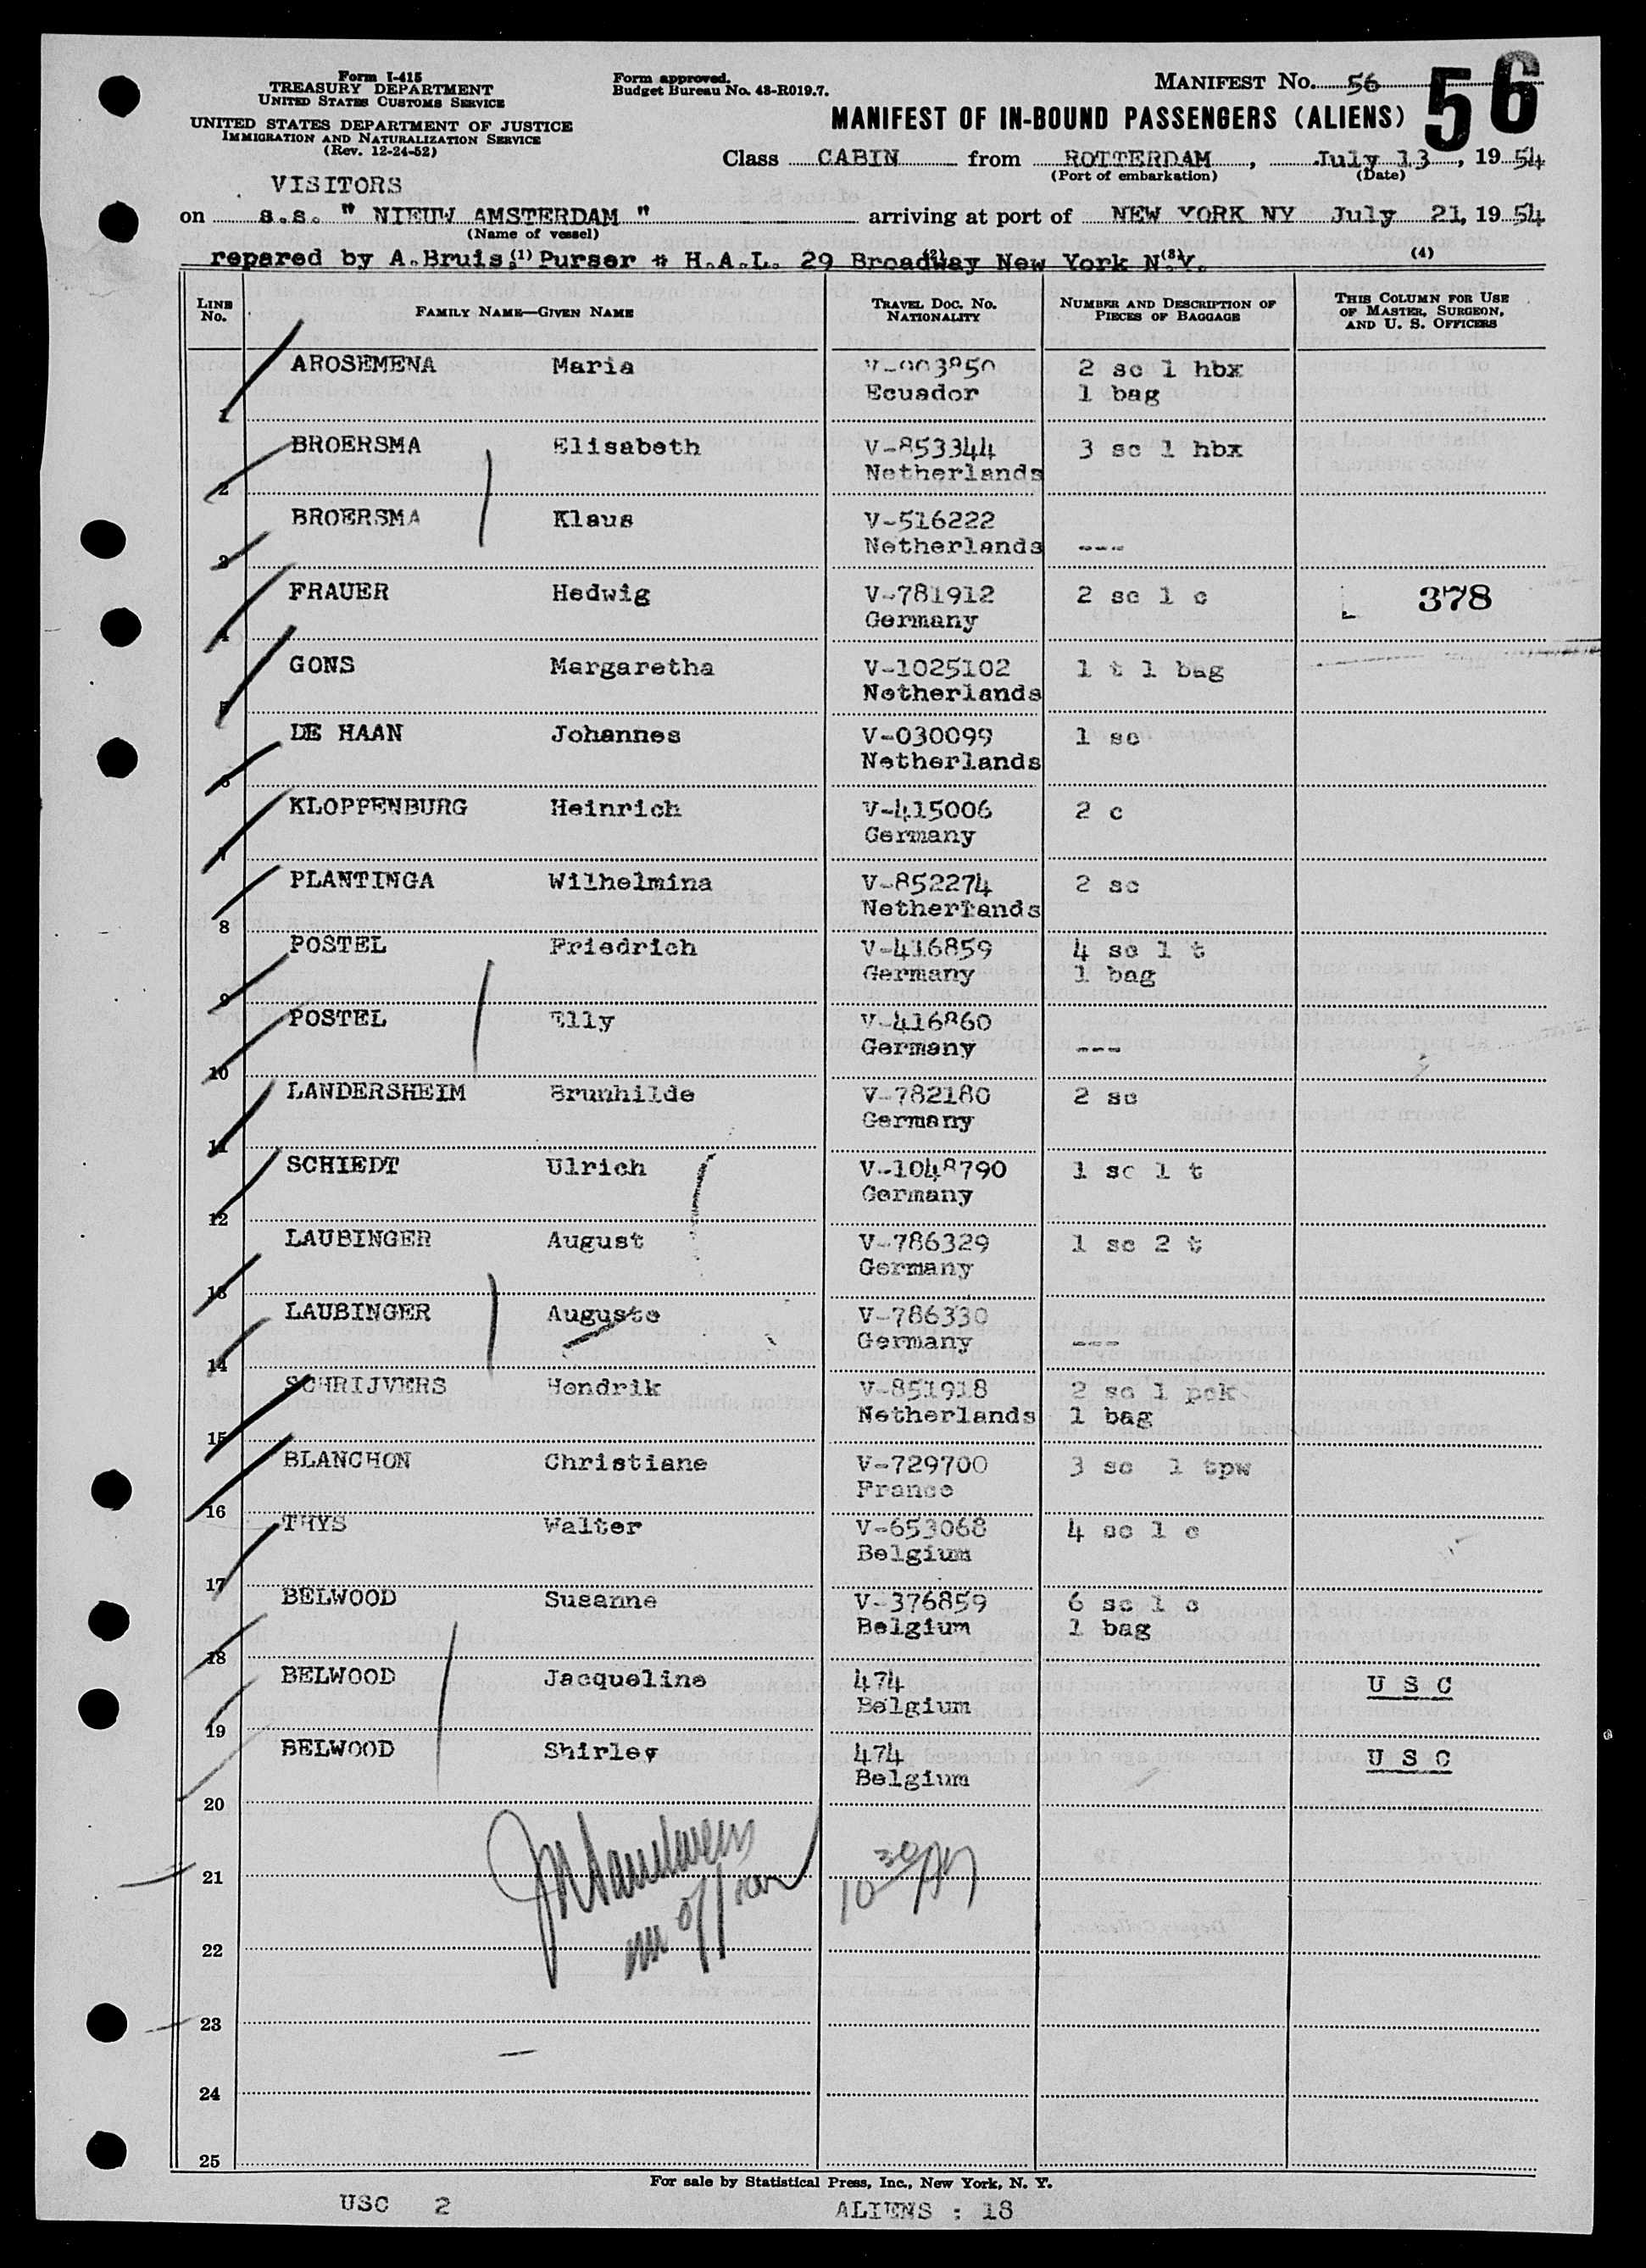 Form I-415
TREASURY DEPARTMENT
UNITED STATES CUSTOMS SERVICE
UNITED STATES DEPARTMENT OF JUSTICE
IMMIGRATION AND NATURALIZATION SERVICE
(Rev. 12-24-52)
Form approved.
Budget Bureau No. 43-R019.7.
MANIFEST No. 56
56
MANIFEST OF IN-BOUND PASSENGERS (ALIENS)
Class CABIN from ROTTERDAM, July 13, 1954
(Port of embarkation) (Date)
VISITORS
on s.s. " NIEUW AMSTERDAM " arriving at port of NEW YORK NY July 21, 1954
(Name of vessel)
repared by A.Bruis, Purser # H.A.L. 29 Broadway New York N.Y.
(1) (2) (3) (4)
LINE No. FAMILY NAME—GIVEN NAME TRAVEL DOC. NO. NATIONALITY NUMBER AND DESCRIPTION OF PIECES OF BAGGAGE THIS COLUMN FOR USE OF MASTER, SURGEON, AND U. S. OFFICERS
AROSEMENA Maria V-003850 2 sc 1 hbx
1 Ecuador 1 bag
BROERSMA Elisabeth V-853344 3 sc 1 hbx
2 Netherlands
BROERSMA Klaus V-516222
3 Netherlands ---
FRAUER Hedwig V-781912 2 sc 1 c 378
4 Germany
GONS Margaretha V-1025102 1 t 1 bag
5 Netherlands
DE HAAN Johannes V-030099 1 sc
6 Netherlands
KLOPPENBURG Heinrich V-415006 2 c
7 Germany
PLANTINGA Wilhelmina V-852274 2 sc
8 Netherlands
POSTEL Friedrich V-416859 4 sc 1 t
9 Germany 1 bag
POSTEL Elly V-416860
10 Germany ---
LANDERSHEIM Brunhilde V-782180 2 sc
11 Germany
SCHIEDT Ulrich V-1048790 1 sc 1 t
12 Germany
LAUBINGER August V-786329 1 sc 2 t
13 Germany
LAUBINGER Auguste V-786330
14 Germany ---
SCHRIJVERS Hendrik V-851918 2 sc 1 pck
15 Netherlands 1 bag
BLANCHON Christiane V-729700 3 sc 1 tpw
16 France
THYS Walter V-653068 4 sc 1 c
17 Belgium
BELWOOD Susanne V-376859 6 sc 1 c
18 Belgium 1 bag
BELWOOD Jacqueline 474 U S C
19 Belgium
BELWOOD Shirley 474 U S C
20 Belgium
21 10 30
22
23
24
25
For sale by Statistical Press, Inc., New York, N. Y.
USC 2 ALIENS : 18